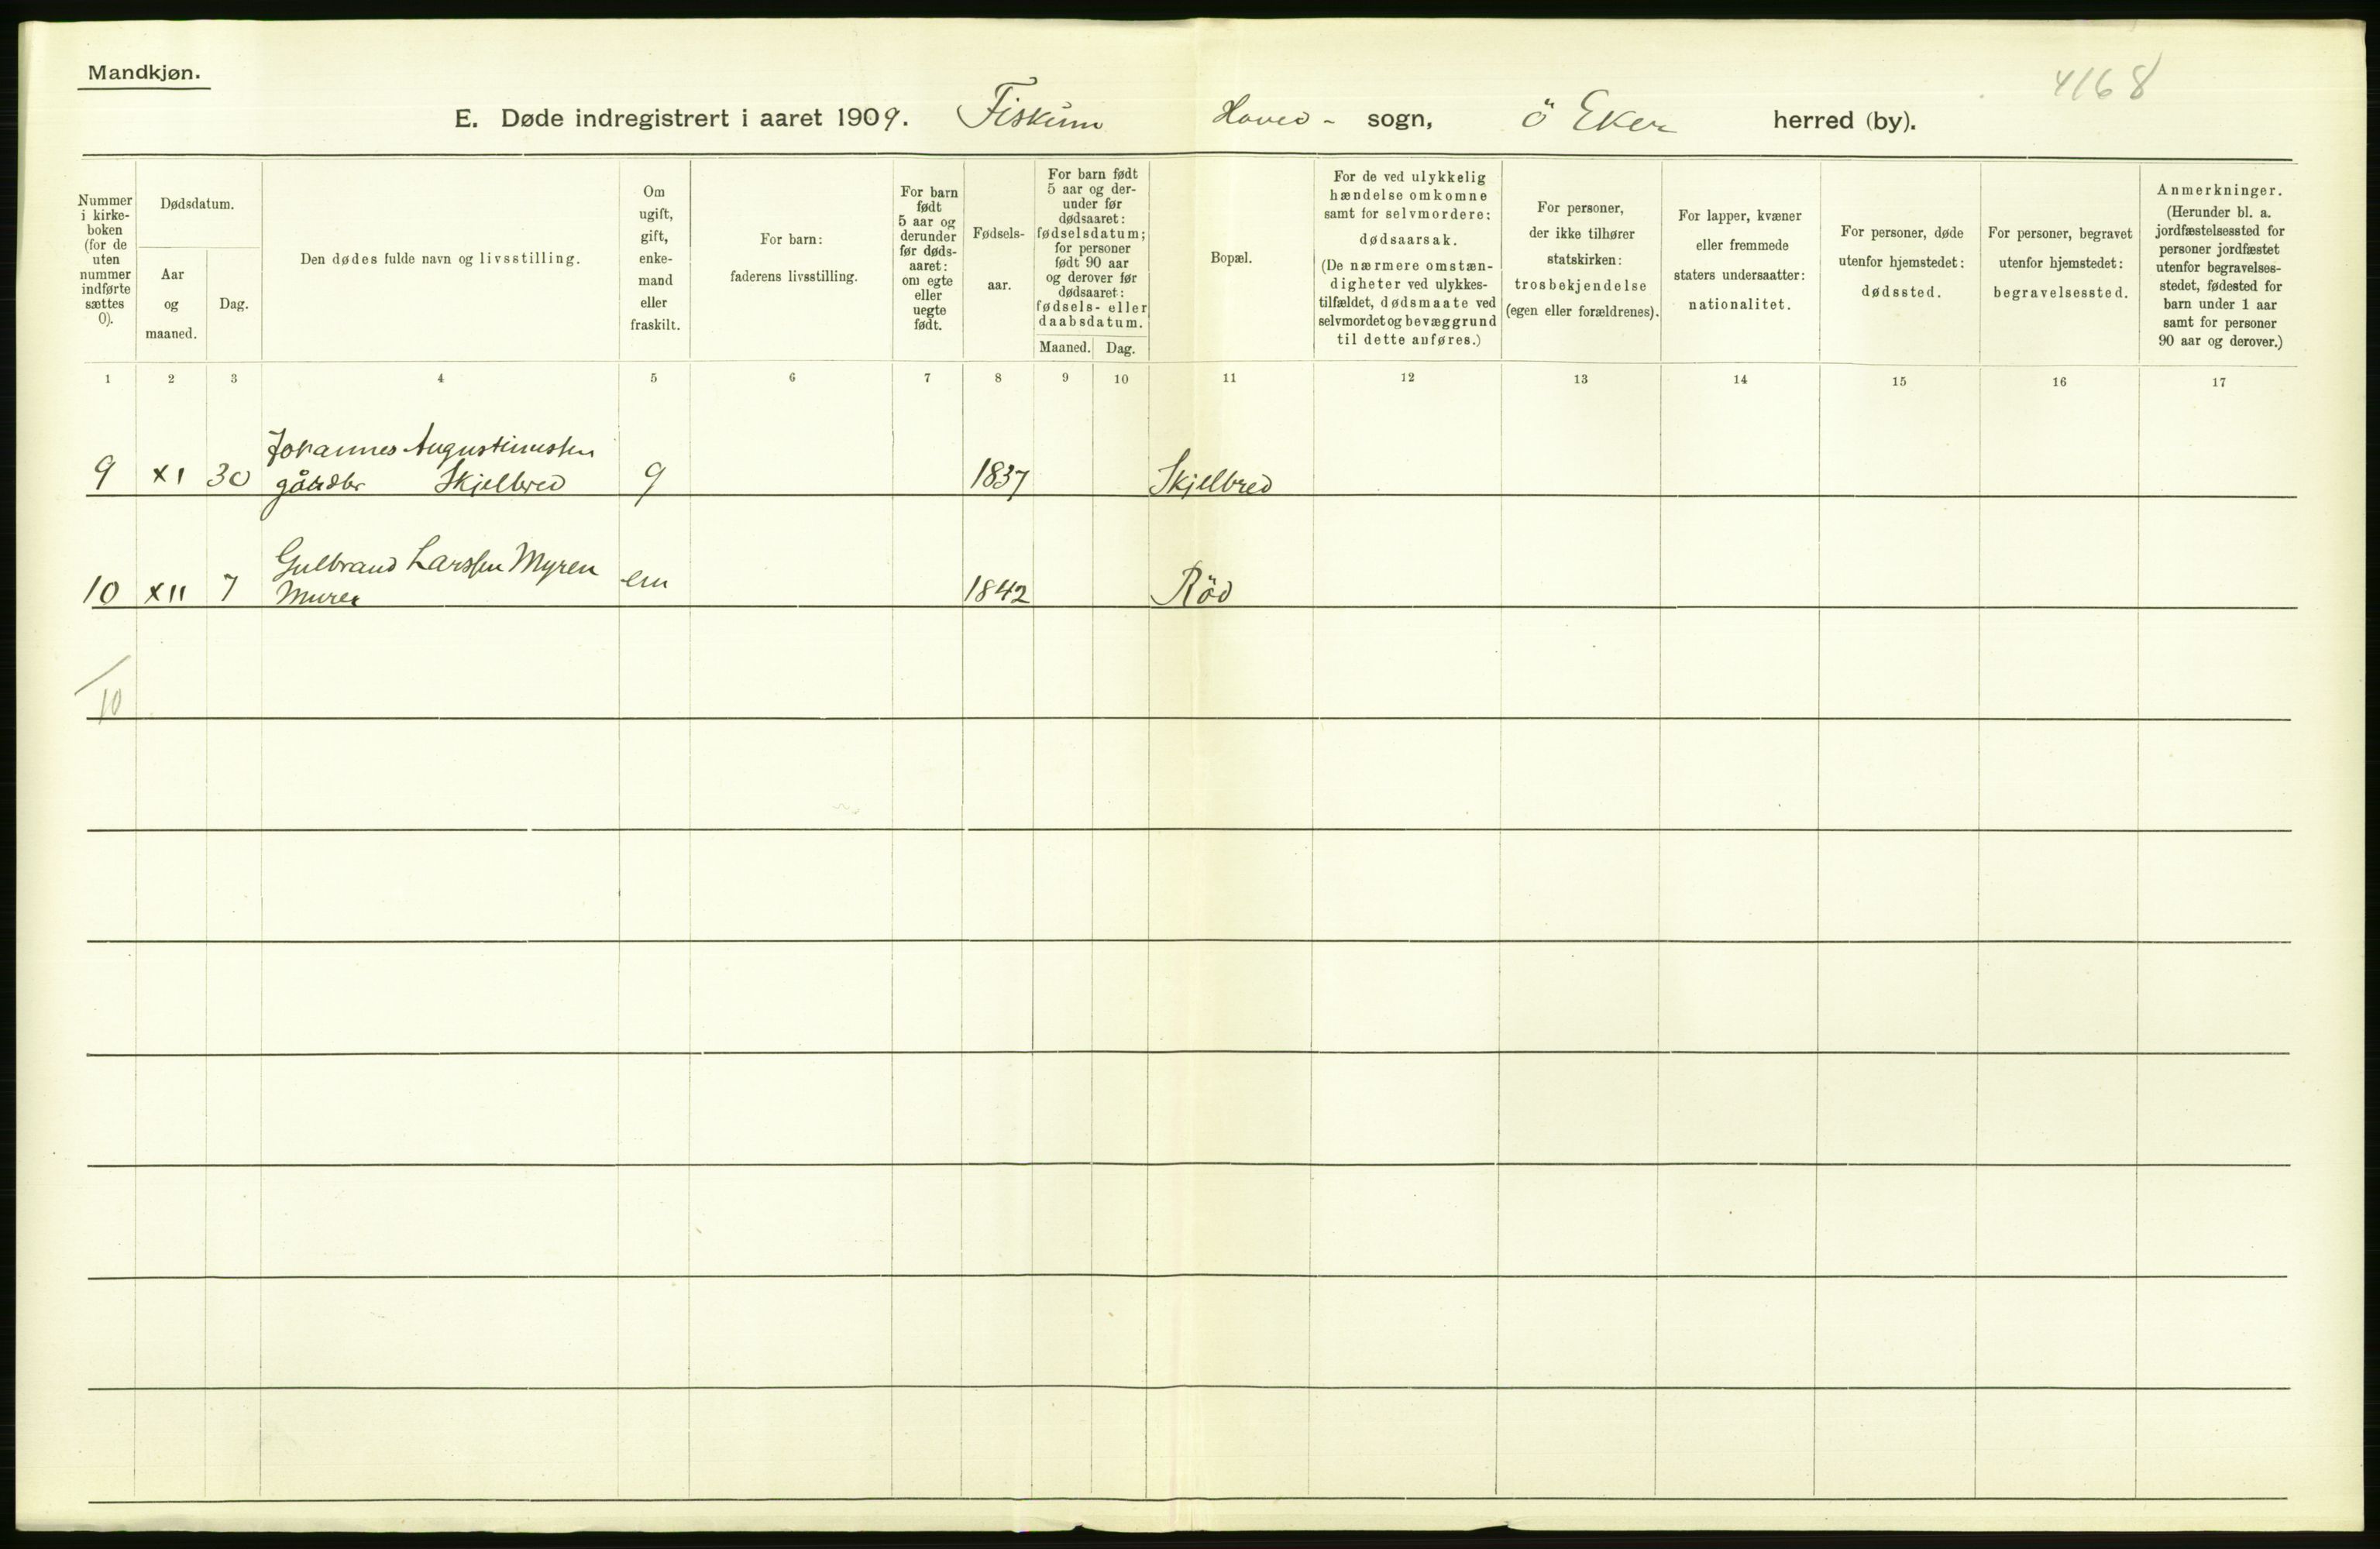 Mandkjøn.
4168
E. Døde indregistrert i aaret 1909. Fiskum Hoved- sogn, ö Eker herred (by).
Nummer
i kirke-
boken
(for de
uten
nummer
indførte
sættes
0).
Dødsdatum.
Aar
og
maaned.
Dag.
Den dødes fulde navn og livsstilling.
Om
ugift,
gift,
enke-
mand
eller
fraskilt.
For barn:
faderens livsstilling.
For barn
født
5 aar og
derunder
før døds-
aaret:
om egte
eller
uegte
født.
Fødsels-
aar.
For barn født
5 aar og der-
under før
dødsaaret:
fødselsdatum;
for personer
født 90 aar
og derover før
dødsaaret:
fødsels- eller
daabsdatum.
Maaned. Dag.
Bopæl.
For de ved ulykkelig
hændelse omkomne
samt for selvmordere:
dødsaarsak.
(De nærmere omstæn-
digheter ved ulykkes-
tilfældet, dødsmaate ved
selvmordet og bevæggrund
til dette anføres.)
For personer,
der ikke tilhører
statskirken:
trosbekjendelse
(egen eller forældrenes).
For lapper, kvæner
eller fremmede
staters undersaatter:
nationalitet.
For personer, døde
utenfor hjemstedet:
dødssted.
For personer, begravet
utenfor hjemstedet:
begravelsessted.
Anmerkninger.
(Herunder bl. a.
jordfæstelsessted for
personer jordfæstet
utenfor begravelses-
stedet, fødested for
barn under 1 aar
samt for personer
90 aar og derover.)
1 2 3 4 5 6 7 8 9 10 11 12 13 14 15 16 17
Johannes Augustinussen
9 XI 30 gårdbr Skjelbred g 1837 Skjelbred
Gulbrand Larssen Myren
10 XII 7 Murer em 1842 Röd
10